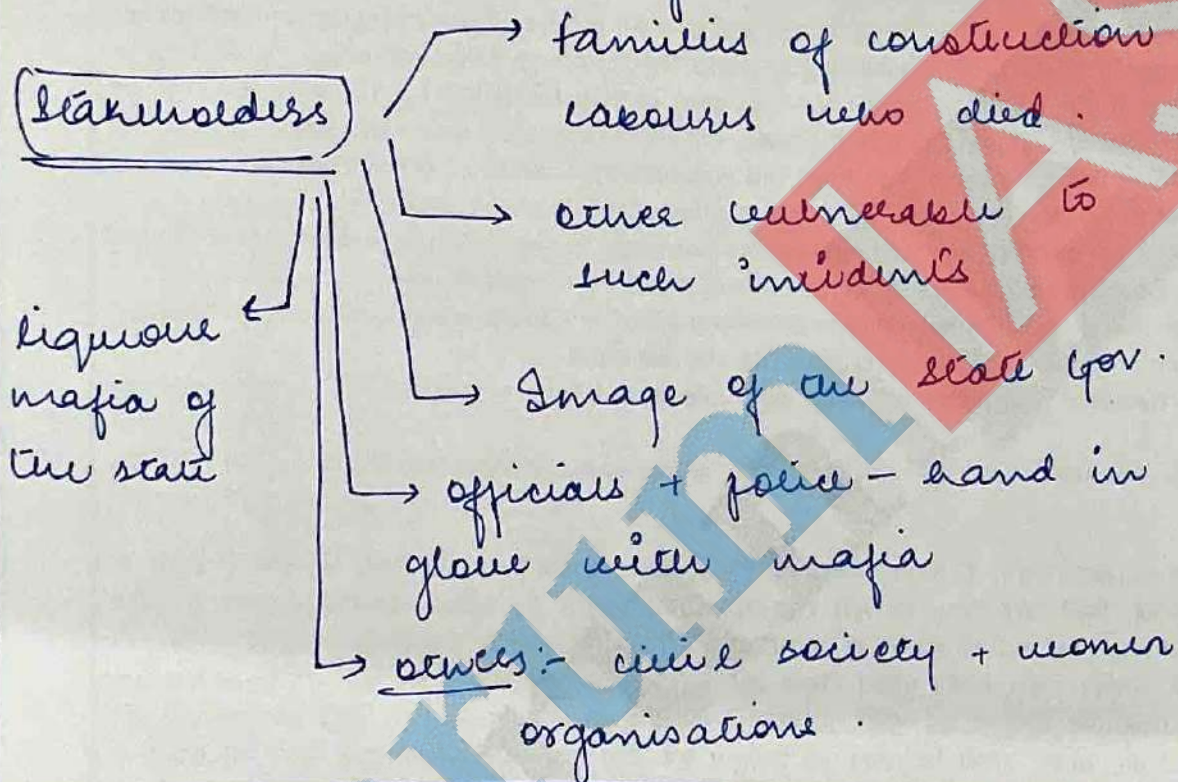 Stakeholders
families of construction
labourers who died.
other vulnerable to
such incidents
Image of the state Gov.
officials + police - hand in
glove with mafia
others:- civil society + women
organisations.
liquour
mafia of
the state
rum IA